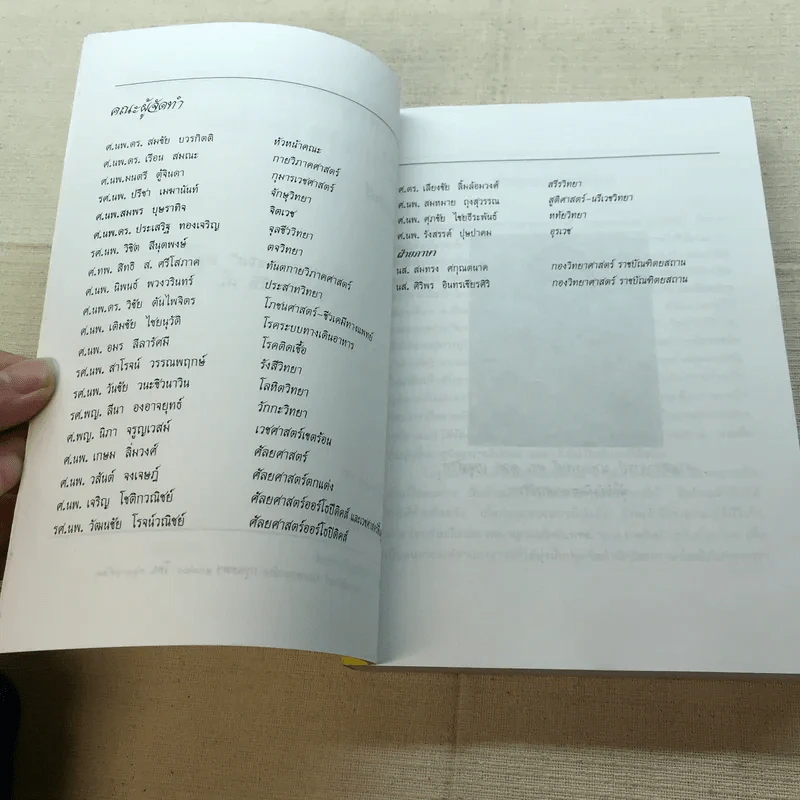 คณะผู้จัดทำ
ศ.นพ.ดร. สมชัย บวรกิตติ หัวหน้าคณะ
ศ.นพ.ดร. เรือน สมณะ กายวิภาคศาสตร์
ศ.นพ.มนตรี ตู้จินดา กุมารเวชศาสตร์
รศ.นพ. ปรีชา เมฆานันท์ จักษุวิทยา
ศ.นพ.สมพร บุษราทิจ จิตเวช
ศ.นพ.ดร. ประเสริฐ ทองเจริญ จุลชีววิทยา
รศ.นพ. วิชิต ลีนุตพงษ์ ตจวิทยา
ศ.ทพ. สิทธิ ส. ศรีโสภาค ทันตกายวิภาคศาสตร์
ศ.นพ. นิพนธ์ พวงวรินทร์ ประสาทวิทยา
ศ.นพ.ดร. วิชัย ตันไพจิตร โภชนศาสตร์-ชีวเคมีทางแพทย์
ศ.นพ. เติมชัย ไชยนุวัติ โรคระบบทางเดินอาหาร
ศ.นพ. อมร ลีลารัศมี โรคติดเชื้อ
รศ.นพ. สาโรจน์ วรรณพฤกษ์ รังสีวิทยา
รศ.นพ. วันชัย วนะชิวนาวิน โลหิตวิทยา
รศ.พญ. ลีนา องอาจยุทธ์ วักกะวิทยา
ศ.พญ. นิภา จรูญเวสม์ เวชศาสตร์เขตร้อน
ศ.นพ. เกษม ลิ่มวงศ์ ศัลยศาสตร์
ศ.นพ. วสันต์ จงเจษฎ์ ศัลยศาสตร์ตกแต่ง
ศ.นพ. เจริญ โชติกวณิชย์ ศัลยศาสตร์ออร์โธปิดิคส์
รศ.นพ. วัฒนชัย โรจน์วณิชย์ ศัลยศาสตร์ออร์โธปิดิคส์
ศ.ดร. เลียงชัย ลิ้มล้อมวงศ์ สรีรวิทยา
ศ.นพ. สมหมาย ถุงสุวรรณ สูติศาสตร์-นรีเวชวิทยา
ศ.นพ. ศุภชัย ไชยธีระพันธ์ หทัยวิทยา
ศ.นพ. รังสรรค์ ปุษปาคม อุรเวช
ฝ่ายภาษา
นส. สมทรง ศกุณตนาค กองวิทยาศาสตร์ ราชบัณฑิตยสถาน
นส. ศิริพร อินทรเชียรศิริ กองวิทยาศาสตร์ ราชบัณฑิตยสถาน